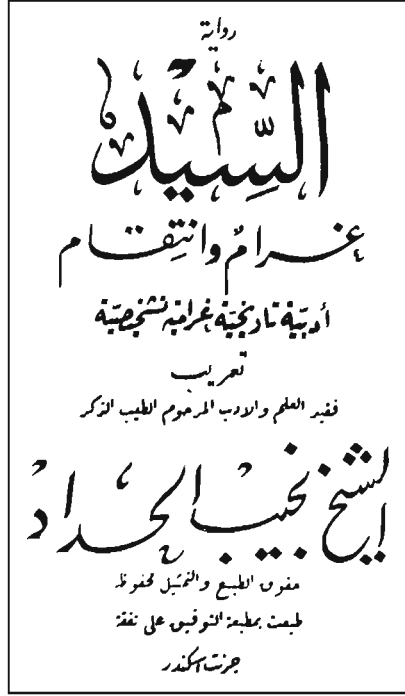 رواية
السِّيد
غرامٌ وانتِقام
أدبيّة تاريخيّة غرامية تشخيصيّة
تعريب
فقيد العلم والادب المرحوم الطيب الذكر
الشيخ نجيب الحداد
حقوق الطبع والتمثيل محفوظة
طبعت بمطبعة التوفيق على نفقة
جرنت اسكندر